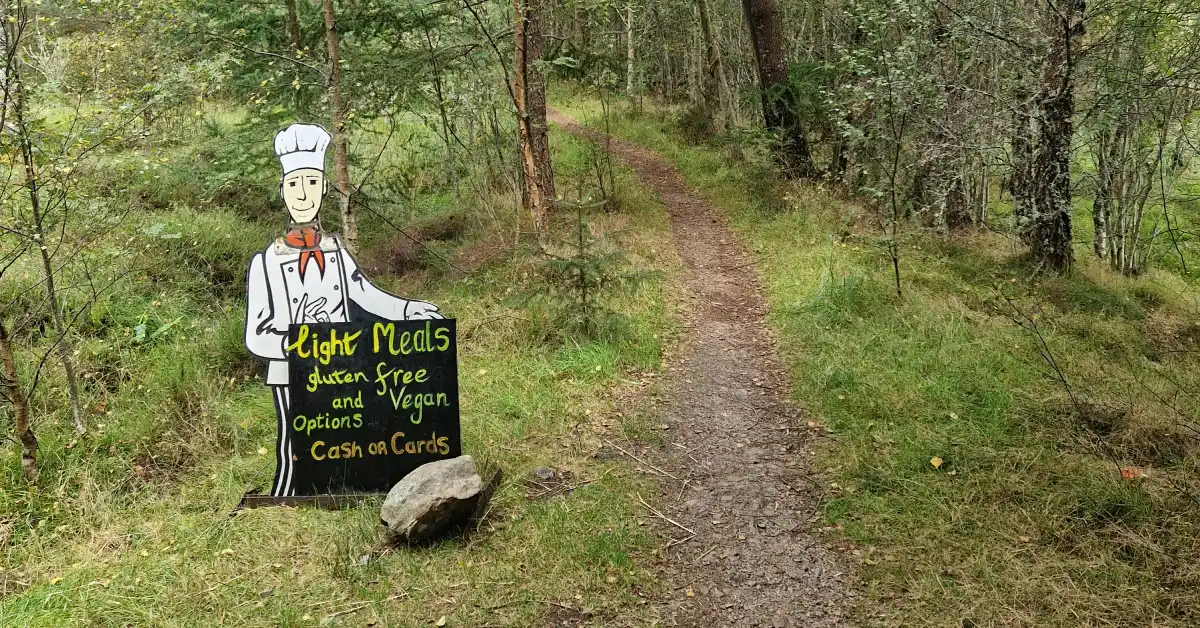 Light Meals
gluten free
and Vegan
Options
Cash or Cards